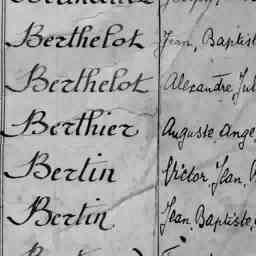 Berthelot Jean, Baptist
Berthelot Alexandre Jul
Berthier Auguste Ange
Bertin Victor, Jean,
Bertin Jean, Baptiste,